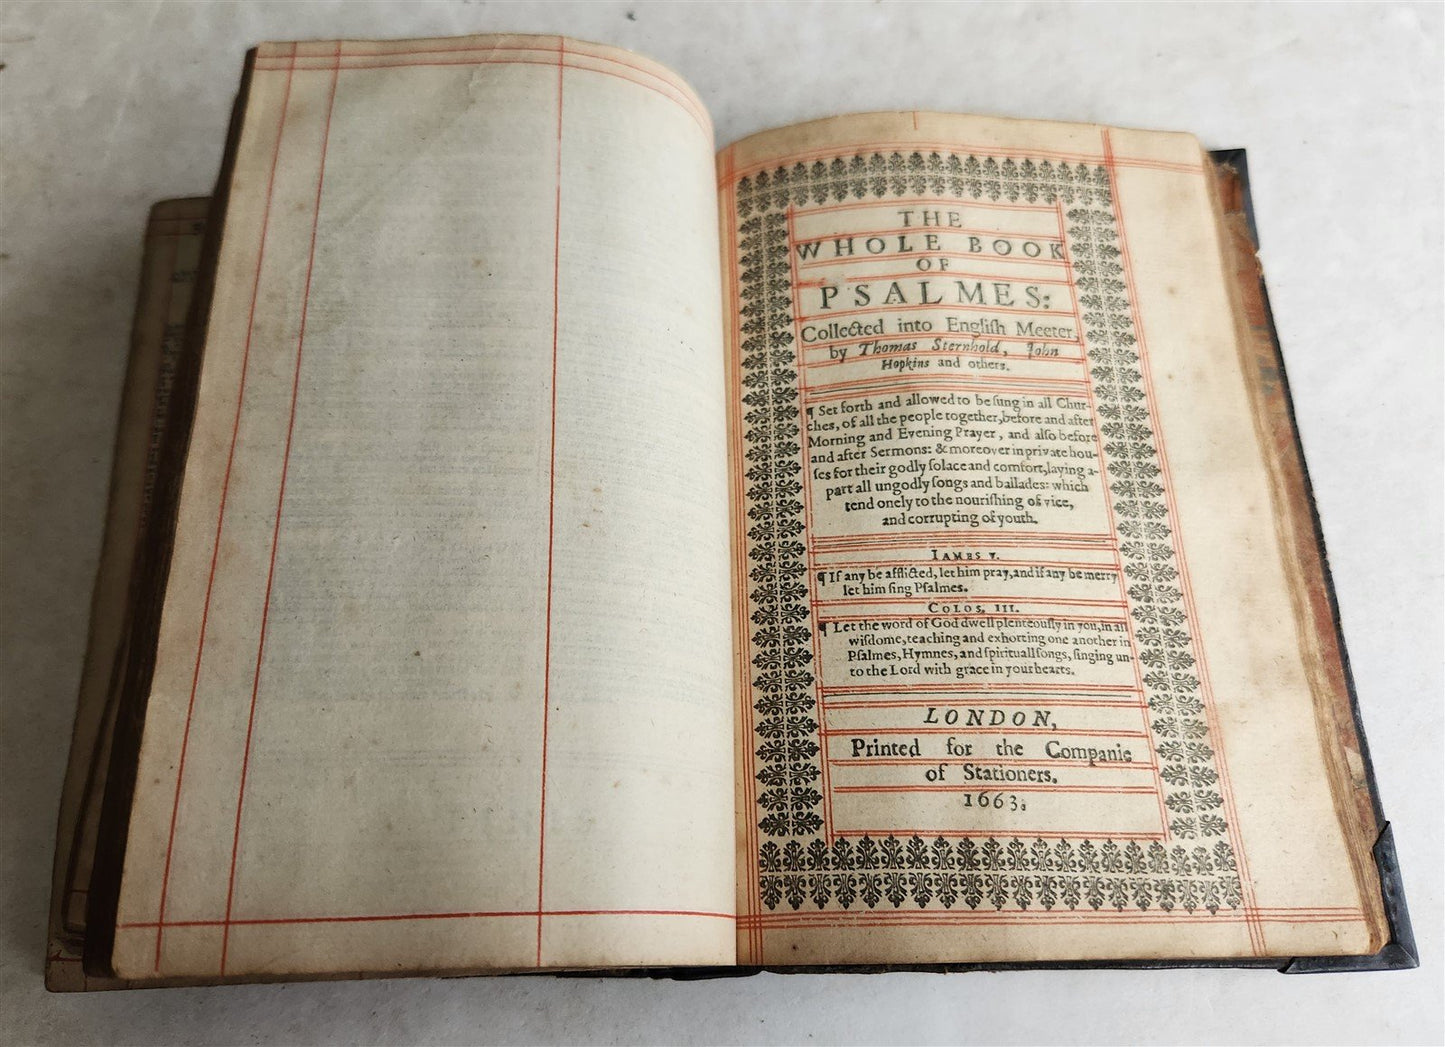 THE
WHOLE BOOK
OF
PSALMES:
Collected into Engliſh Meeter,
by Thomas Sternhold, John
Hopkins and others.
¶ Set forth and allowed to be ſung in all Chur-
ches, of all the people together, before and after
Morning and Evening Prayer, and alſo before
and after Sermons: & moreover in private hou-
ſes for their godly ſolace and comfort, laying a-
part all ungodly ſongs and ballades: which
tend onely to the nouriſhing of vice,
and corrupting of youth.
IAMES V.
¶ If any be afflicted, let him pray, and if any be merry
let him ſing Pſalmes.
COLOS. III.
¶ Let the word of God dwell plenteouſly in you, in all
wiſdome, teaching and exhorting one another in
Pſalmes, Hymnes, and ſpirituall ſongs, ſinging un-
to the Lord with grace in your hearts.
LONDON,
Printed for the Companie
of Stationers.
1663.